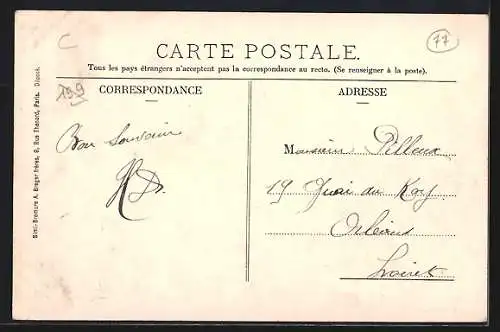 C
77
CARTE POSTALE.
Tous les pays étrangers n'acceptent pas la correspondance au recto. (Se renseigner à la poste).
CORRESPONDANCE
ADRESSE
199
Bon Souvenir
Monsieur Pilloux
19 Quai du Roy
Orléans
Loiret
Simili-Bromure A. Breger frères, 9, Rue Thénard, Paris. Déposé.